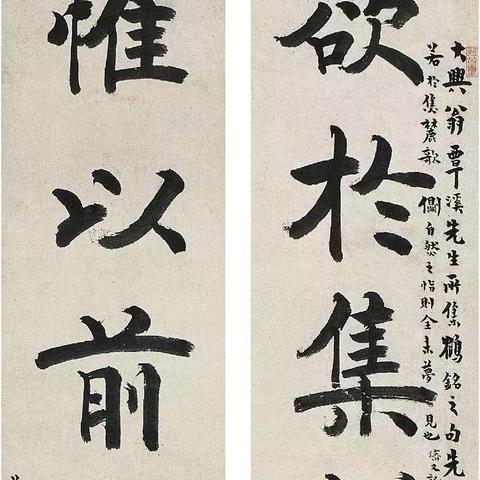 大興翁覃溪先生所集鶴銘之句先
若於麓側自然之恉則全未夢見也
欲於集
惟以前